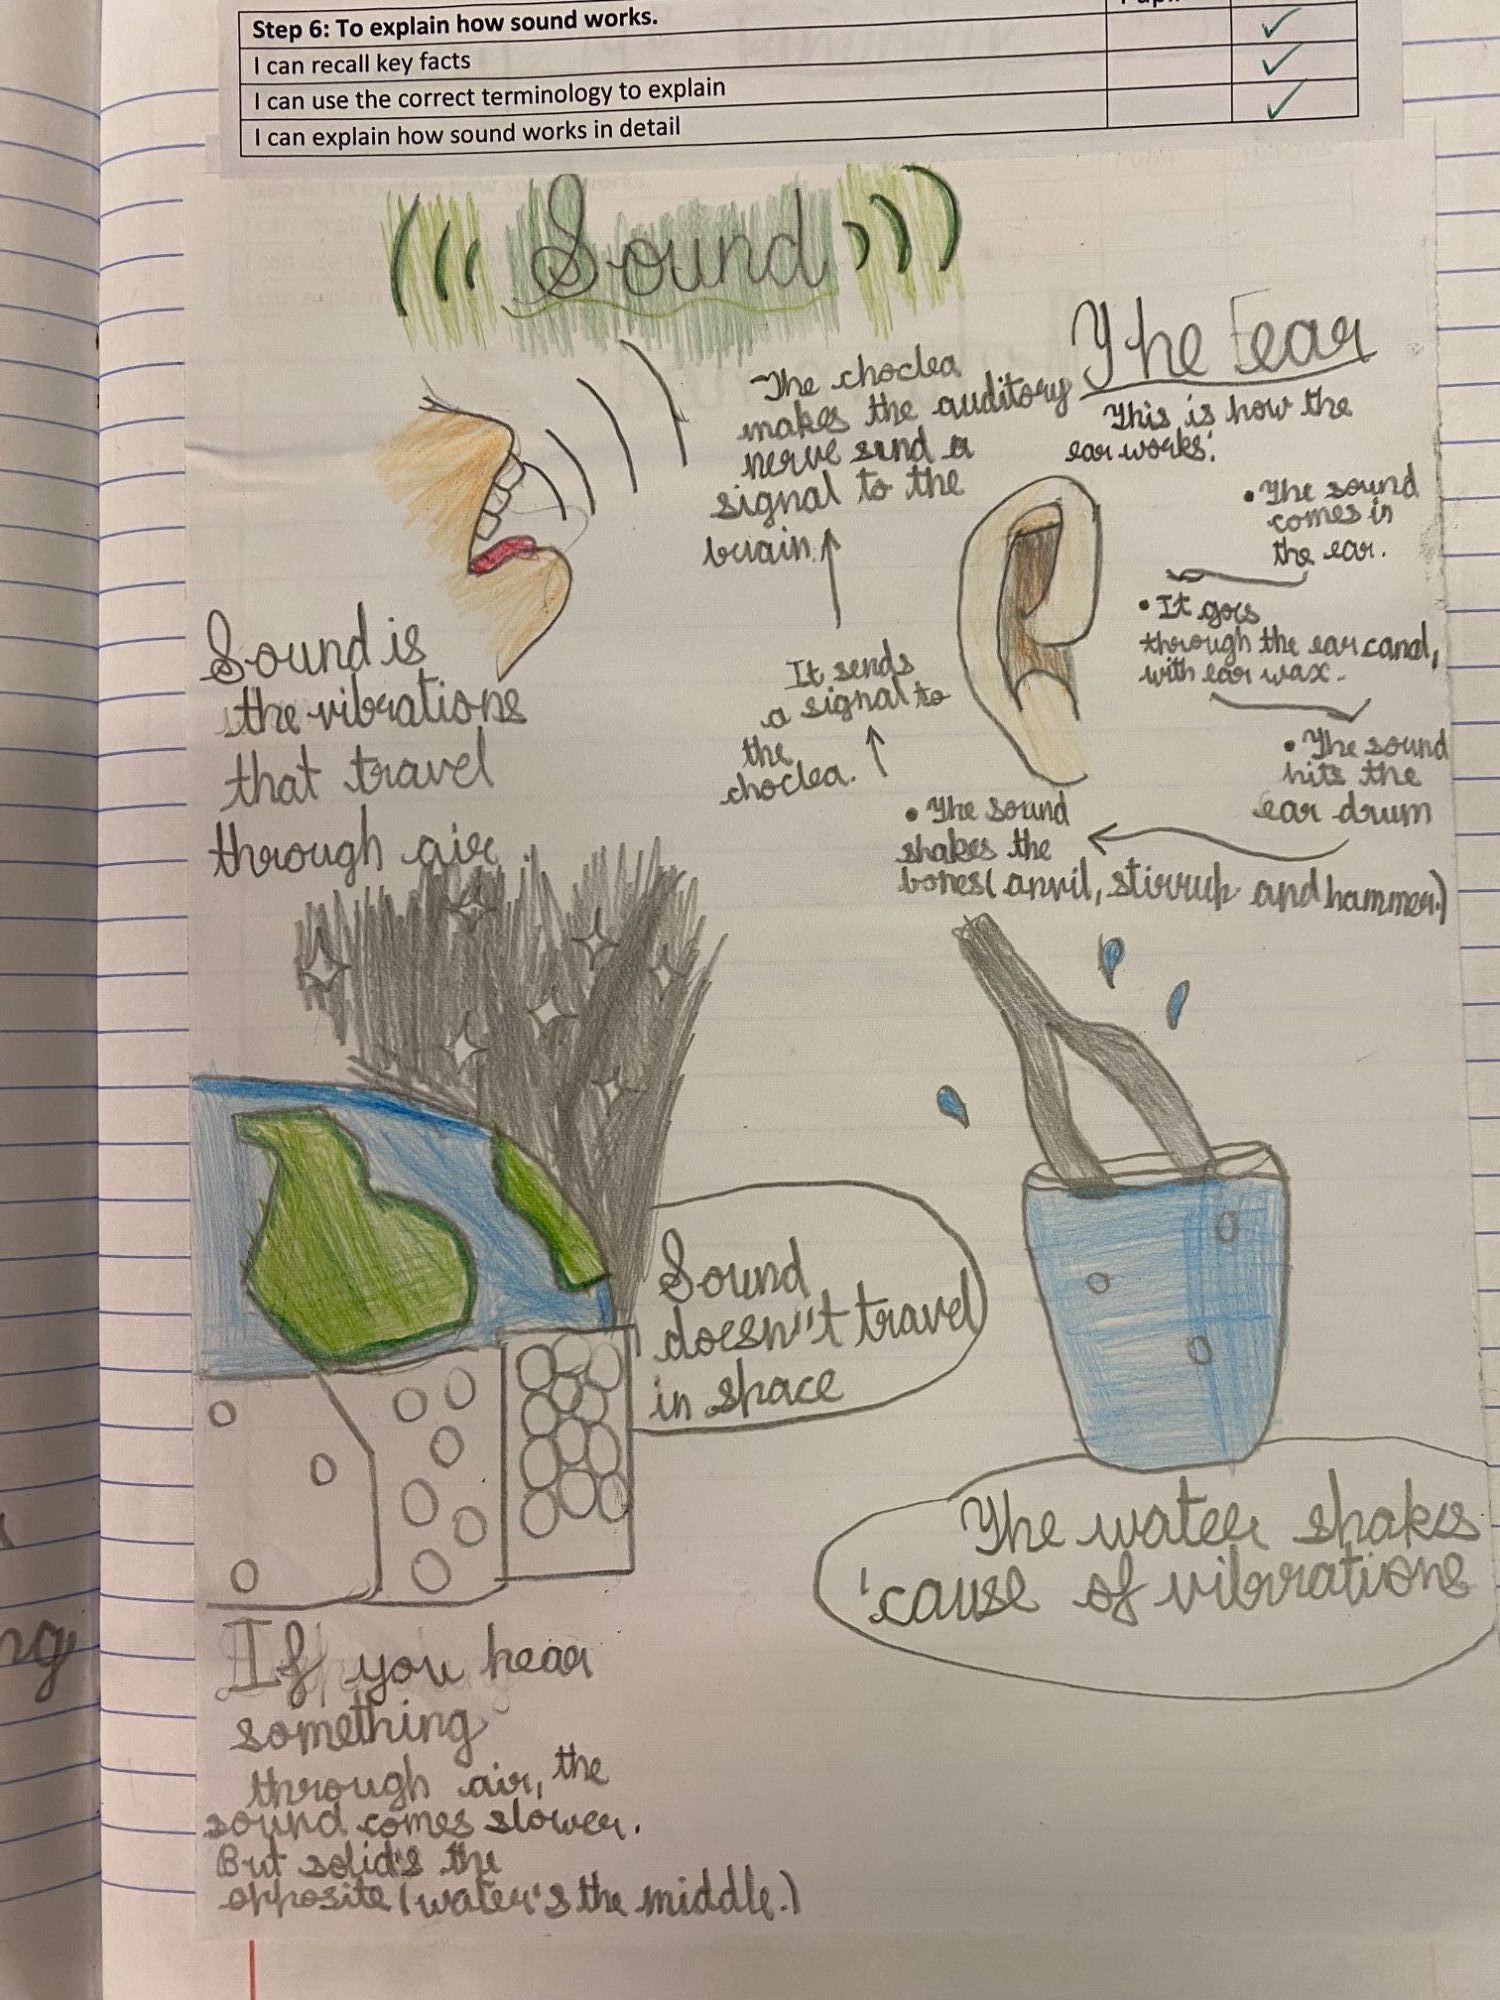 Step 6: To explain how sound works.
I can recall key facts
I can use the correct terminology to explain
I can explain how sound works in detail
Sound
The Eear
This is how the
ear works:
• The sound
comes in
the ear.
• It goes
through the ear canal,
with ear wax.
• The sound
hits the
ear drum
• The sound
shakes the
bones (anvil, stirrup and hammer.)
It sends
a signal to
the
choclea.
The choclea
makes the auditory
nerve send a
signal to the
brain.
Sound is
the vibrations
that travel
through air.
Sound
doesn't travel
in space
The water shakes
'cause of vibrations
If you hear
something
through air, the
sound comes slower.
But solid's the
opposite (water's the middle.)